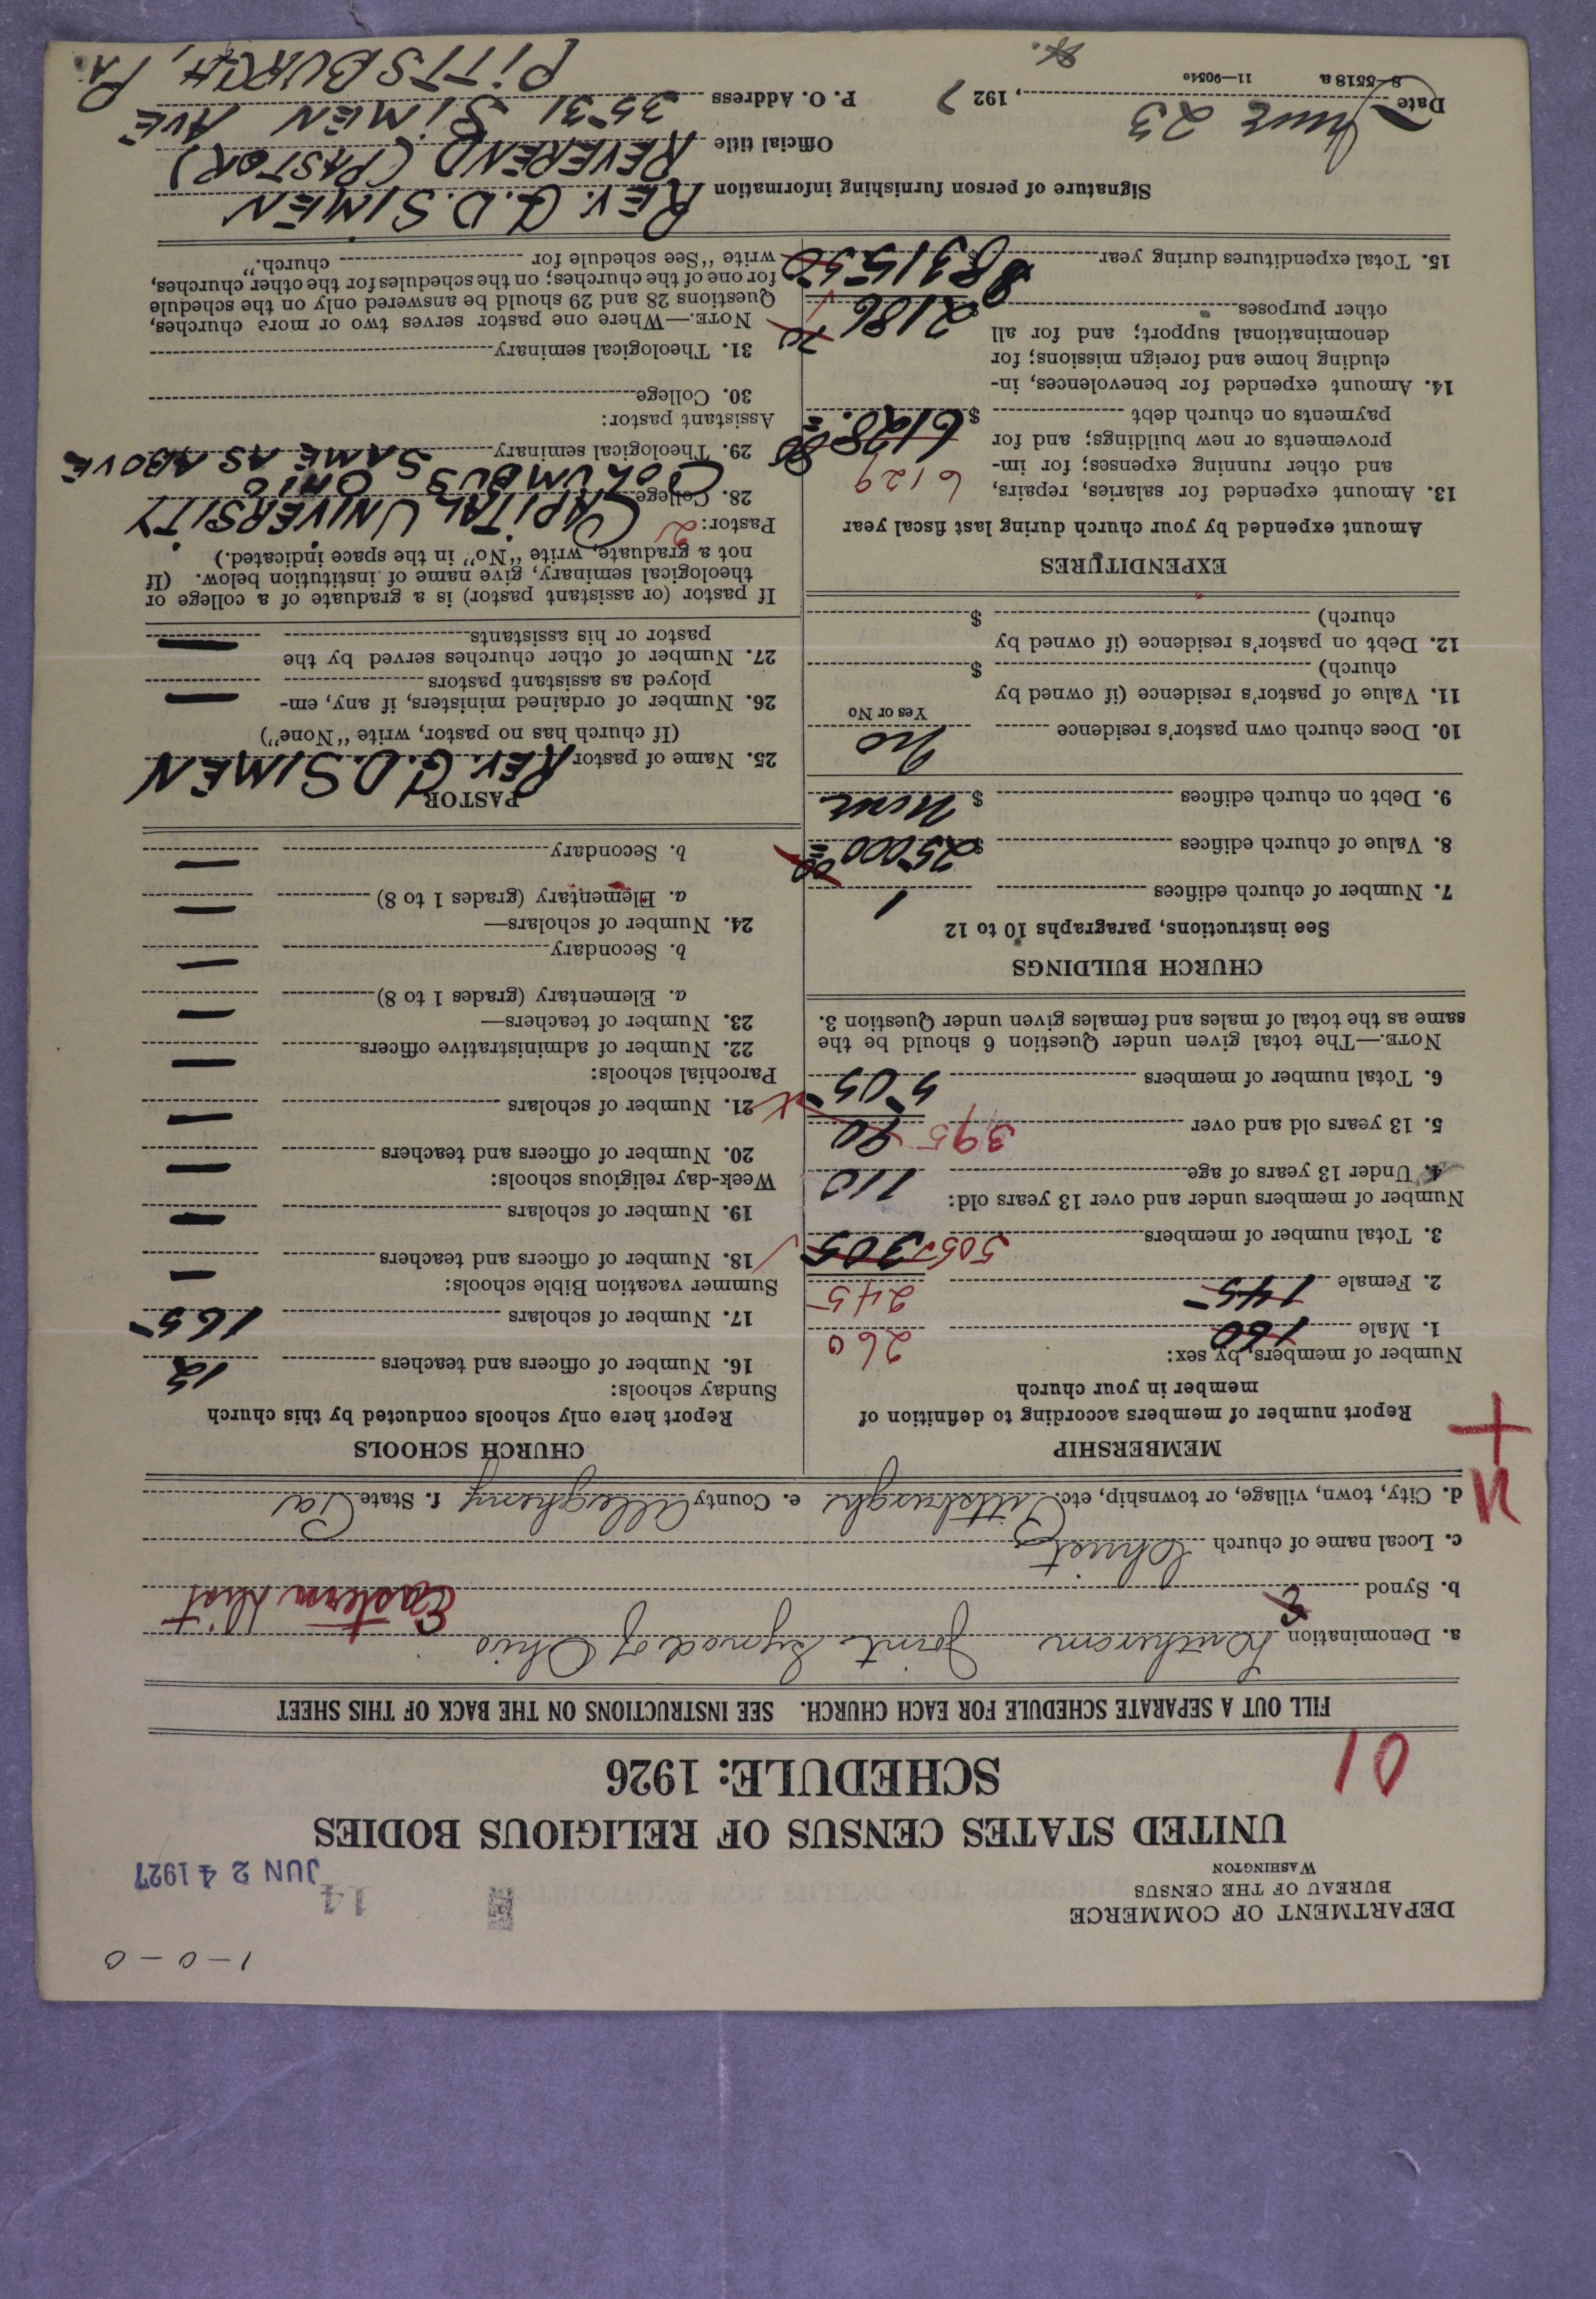 1-0-0
DEPARTMENT OF COMMERCE
BUREAU OF THE CENSUS
WASHINGTON
14
JUN 24 1927
UNITED STATES CENSUS OF RELIGIOUS BODIES
SCHEDULE: 1926
10
FILL OUT A SEPARATE SCHEDULE FOR EACH CHURCH. SEE INSTRUCTIONS ON THE BACK OF THIS SHEET
a. Denomination Lutheran Joint Synod of Ohio
b. Synod Eastern Dist
c. Local name of church Christ
d. City, town, village, or township, etc. Pittsburgh e. County Allegheny f. State Pa
MEMBERSHIP
Report number of members according to definition of
member in your church
Number of members, by sex:
1. Male 160 260
2. Female 145 245
3. Total number of members 505 305
Number of members under and over 13 years old:
4. Under 13 years of age 110
5. 13 years old and over 395
6. Total number of members 505
NOTE.—The total given under Question 6 should be the
same as the total of males and females given under Question 3.
CHURCH BUILDINGS
See instructions, paragraphs 10 to 12
7. Number of church edifices 1
8. Value of church edifices $25000 00
9. Debt on church edifices $ None
10. Does church own pastor's residence No
Yes or No
11. Value of pastor's residence (if owned by
church) $
12. Debt on pastor's residence (if owned by
church) $
EXPENDITURES
Amount expended by your church during last fiscal year
13. Amount expended for salaries, repairs,
and other running expenses; for im-
provements or new buildings; and for
payments on church debt $ 6128.80
6129
14. Amount expended for benevolences, in-
cluding home and foreign missions; for
denominational support; and for all
other purposes 2186 70
15. Total expenditures during year $ 8315 50
CHURCH SCHOOLS
Report here only schools conducted by this church
Sunday schools:
16. Number of officers and teachers 12
17. Number of scholars 165
Summer vacation Bible schools:
18. Number of officers and teachers —
19. Number of scholars —
Week-day religious schools:
20. Number of officers and teachers —
21. Number of scholars —
Parochial schools:
22. Number of administrative officers —
23. Number of teachers—
a. Elementary (grades 1 to 8) —
b. Secondary —
24. Number of scholars—
a. Elementary (grades 1 to 8) —
b. Secondary —
PASTOR
25. Name of pastor REV. G. D. SIMEN
(If church has no pastor, write "None")
26. Number of ordained ministers, if any, em-
ployed as assistant pastors —
27. Number of other churches served by the
pastor or his assistants —
If pastor (or assistant pastor) is a graduate of a college or
theological seminary, give name of institution below. (If
not a graduate, write "No" in the space indicated.)
Pastor: 2
28. College CAPITAL UNIVERSITY
COLUMBUS OHIO
29. Theological seminary SAME AS ABOVE
Assistant pastor:
30. College
31. Theological seminary
NOTE.—Where one pastor serves two or more churches,
Questions 28 and 29 should be answered only on the schedule
for one of the churches; on the schedules for the other churches,
write "See schedule for church."
Signature of person furnishing information REV. G. D. SIMEN
Official title REVEREND (PASTOR)
Date June 23, 1927 P. O. Address 3531 SIMEN AVE
PITTSBURGH, PA.
8—5518 a 11—9051c